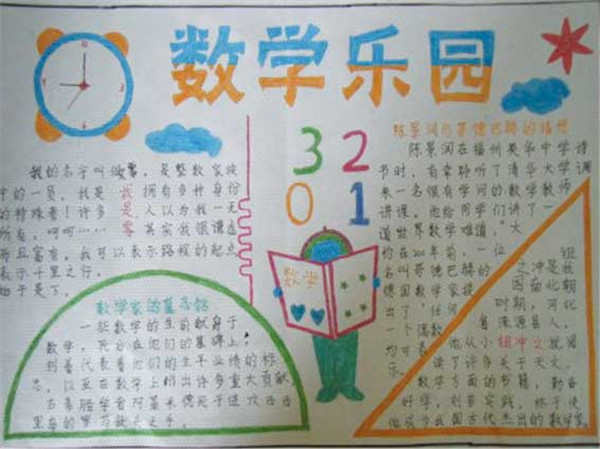 数学乐园
12
3
6
9
3 2
0 1
我的名字叫 零，是整数家族
中的一员，我是 拥有多种身份
我是零
的特殊者！许多 人以为我一无
所有，呵呵…… 其实我很谦虚
而且富有，我可以表示路程的起点
表示千里之行，
始于足下。
数学家的墓志铭
一些数学家生前献身于
数学，死后在他们的墓碑上，
刻着代表着他们的生平业绩的标
志，
古希腊学者阿基米德死于进攻西西
里
数学
陈景润与哥德巴赫的猜想
陈景润在福州英华中学读
书时，有幸聆听了清华大学调
来一名很有学问的数学教师
讲课。他给同学们讲了一
道世界数学难题："大
约在200年前，一位
名叫哥德巴赫的
德国数学家提
出了'任何
一个偶数
均可
乐
祖
冲之
时期，河北
省涞源县人，
他从小 祖冲之 就阅
读了许多关于天文、
数学方面的书籍，勤奋
好学，刻苦实践，终于使
他成为我国古代杰出的数学家。